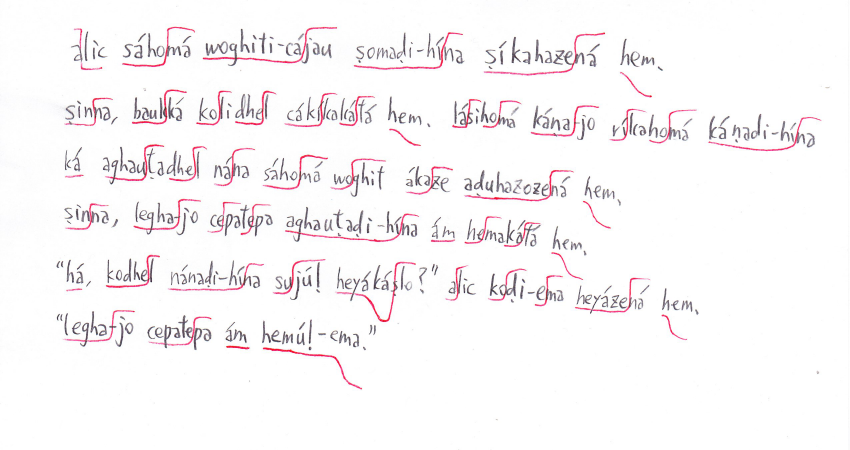 alic sáhomá woghiti-cájau ṣomaḍi-hína ṣíkahazená hem.
ṣinna, baukká kolidhel cákíkakátá hem. lásihomá kánafjo rílkahomá káṇadi-hína
ká aghauṭadhel nána sáhomá woghit ákaze aduhazozená hem.
ṣinna, leghafjo cepatepa aghauṭaḍi-hína ám hemakátá hem.
“há, kodhel nánadi-hína sujú! heyákáṣlo?” alic koḍi-ema heyázená hem.
“leghafjo cepatepa ám hemú!-ema.”